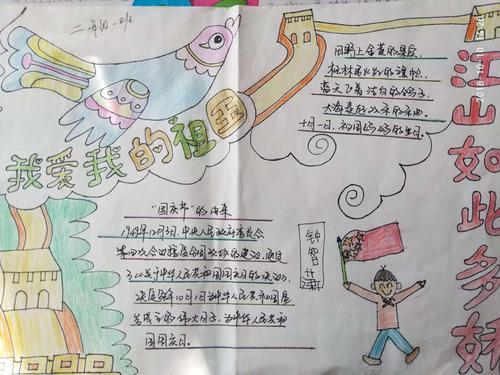 二年级一班
我爱我的祖国
江山如此多娇
田野上金黄的果辰,
枫林是火火的旗帜,
蓝天飞着洁白的鸽子,
大海奏起欢乐的乐曲.
十月一日,祖国妈妈的生日。
"国庆节"的由来
1949年12月3日,中央人民政府委员会
第四次会议接受全国政协的建议,通过
了《关于中华人民共和国国庆日的决议》,
决定每年10月1日为中华人民共和国宣
告成立的伟大日子,为中华人民共和
国国庆日。
钟智
2018-10-10